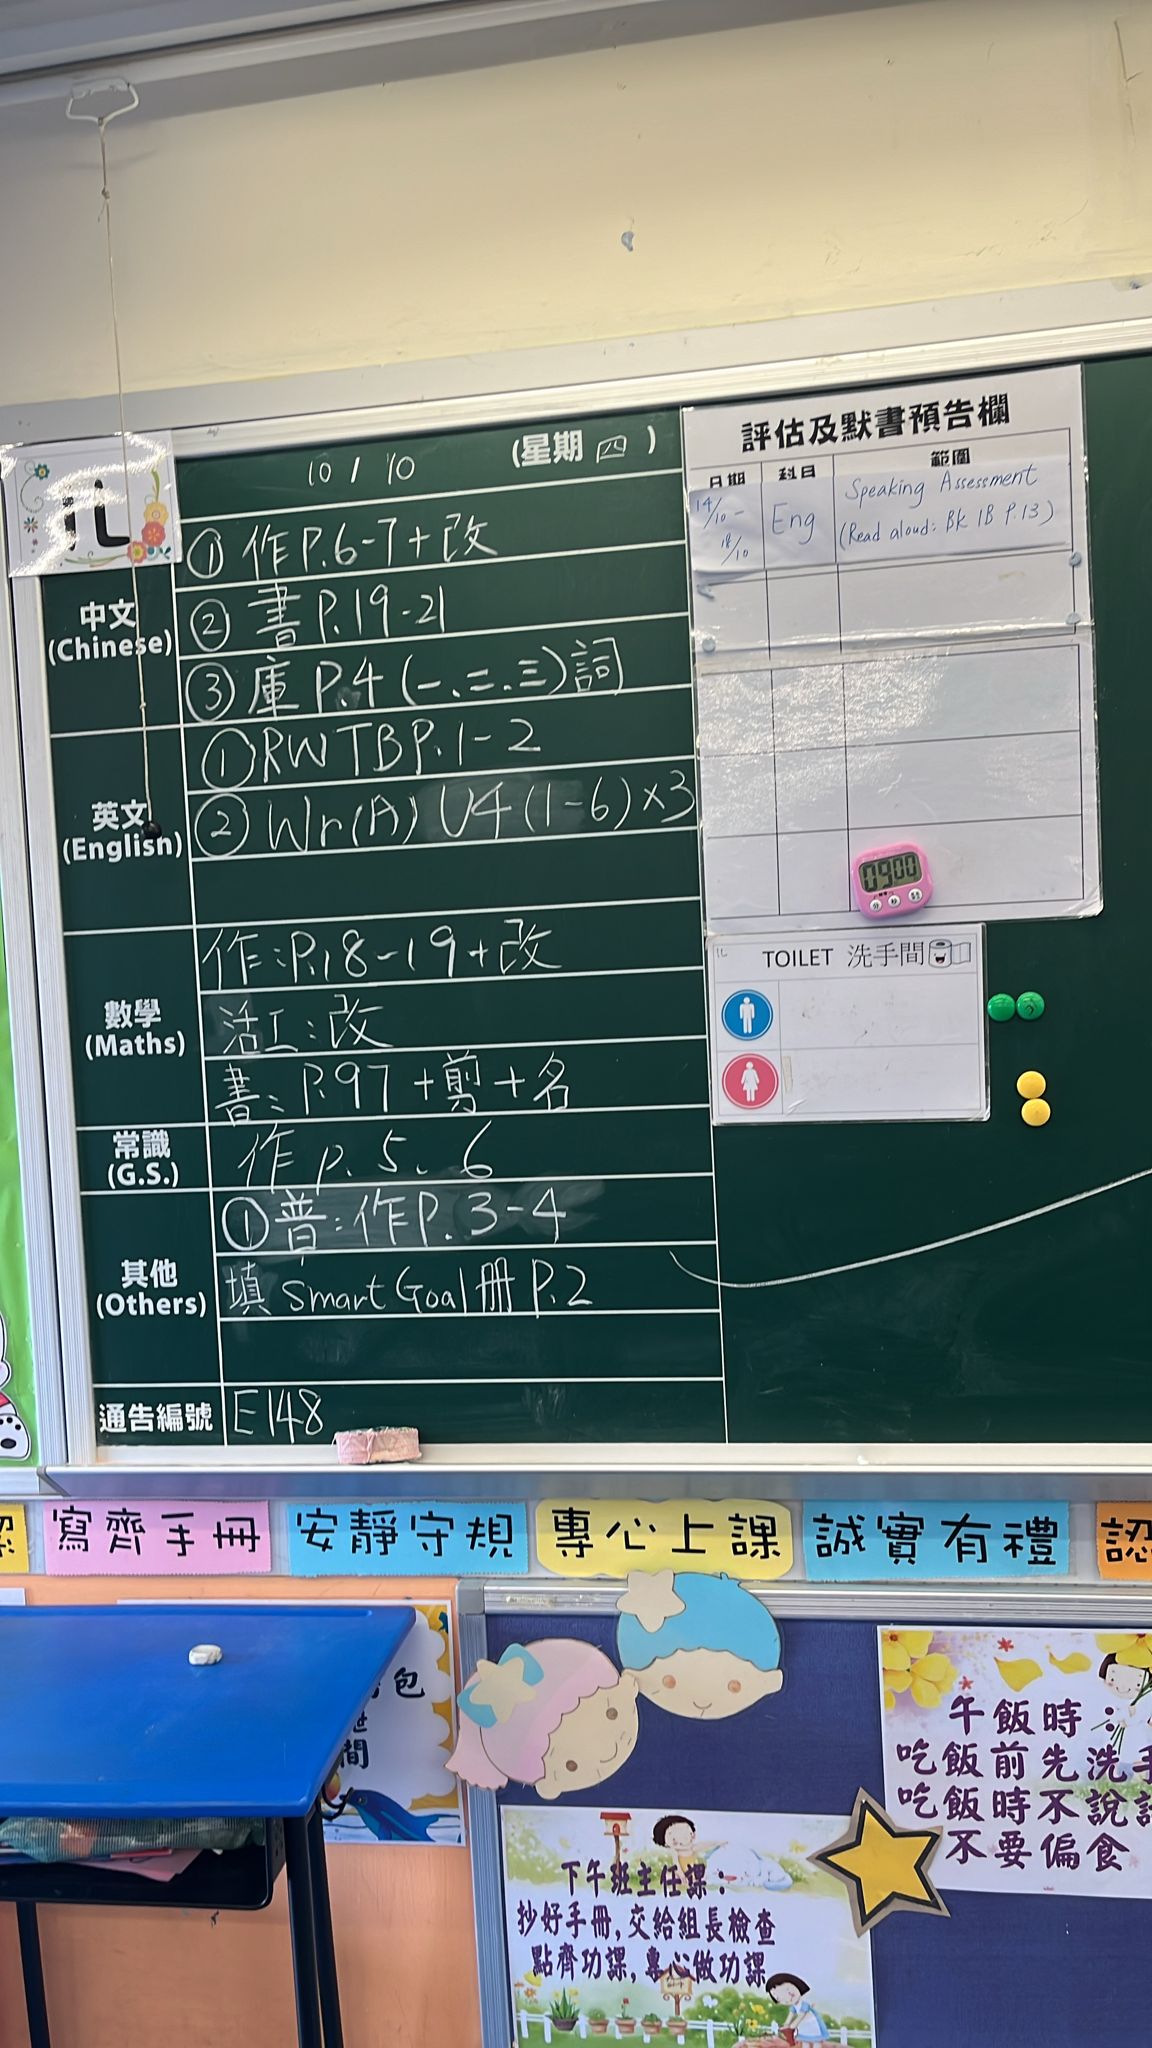 1L
10 / 10 (星期 四 )
中文
(Chinese)
① 作 P.6-7+改
② 書 P.19-21
③ 庫 P.4 (一.二.三)詞
英文
(English)
① RW TB P.1-2
② Wr(A) U4 (1-6)×3
數學
(Maths)
作:P.18-19+改
活工:改
書:P.97 +剪+名
常識
(G.S.)
作 p. 5、6
其他
(Others)
① 普:作P. 3-4
填 Smart Goal 冊 P.2
通告編號
E148
評估及默書預告欄
日期 科目 範圍
14/10 - 18/10
Eng
Speaking Assessment
(Read aloud: BK 1B P.13)
0900
1L
TOILET 洗手間
寫齊手冊
安靜守規
專心上課
誠實有禮
認
包
間
午飯時:
吃飯前先洗手
吃飯時不說
不要偏食
下午班主任課:
抄好手冊,交給組長檢查
點齊功課,專心做功課